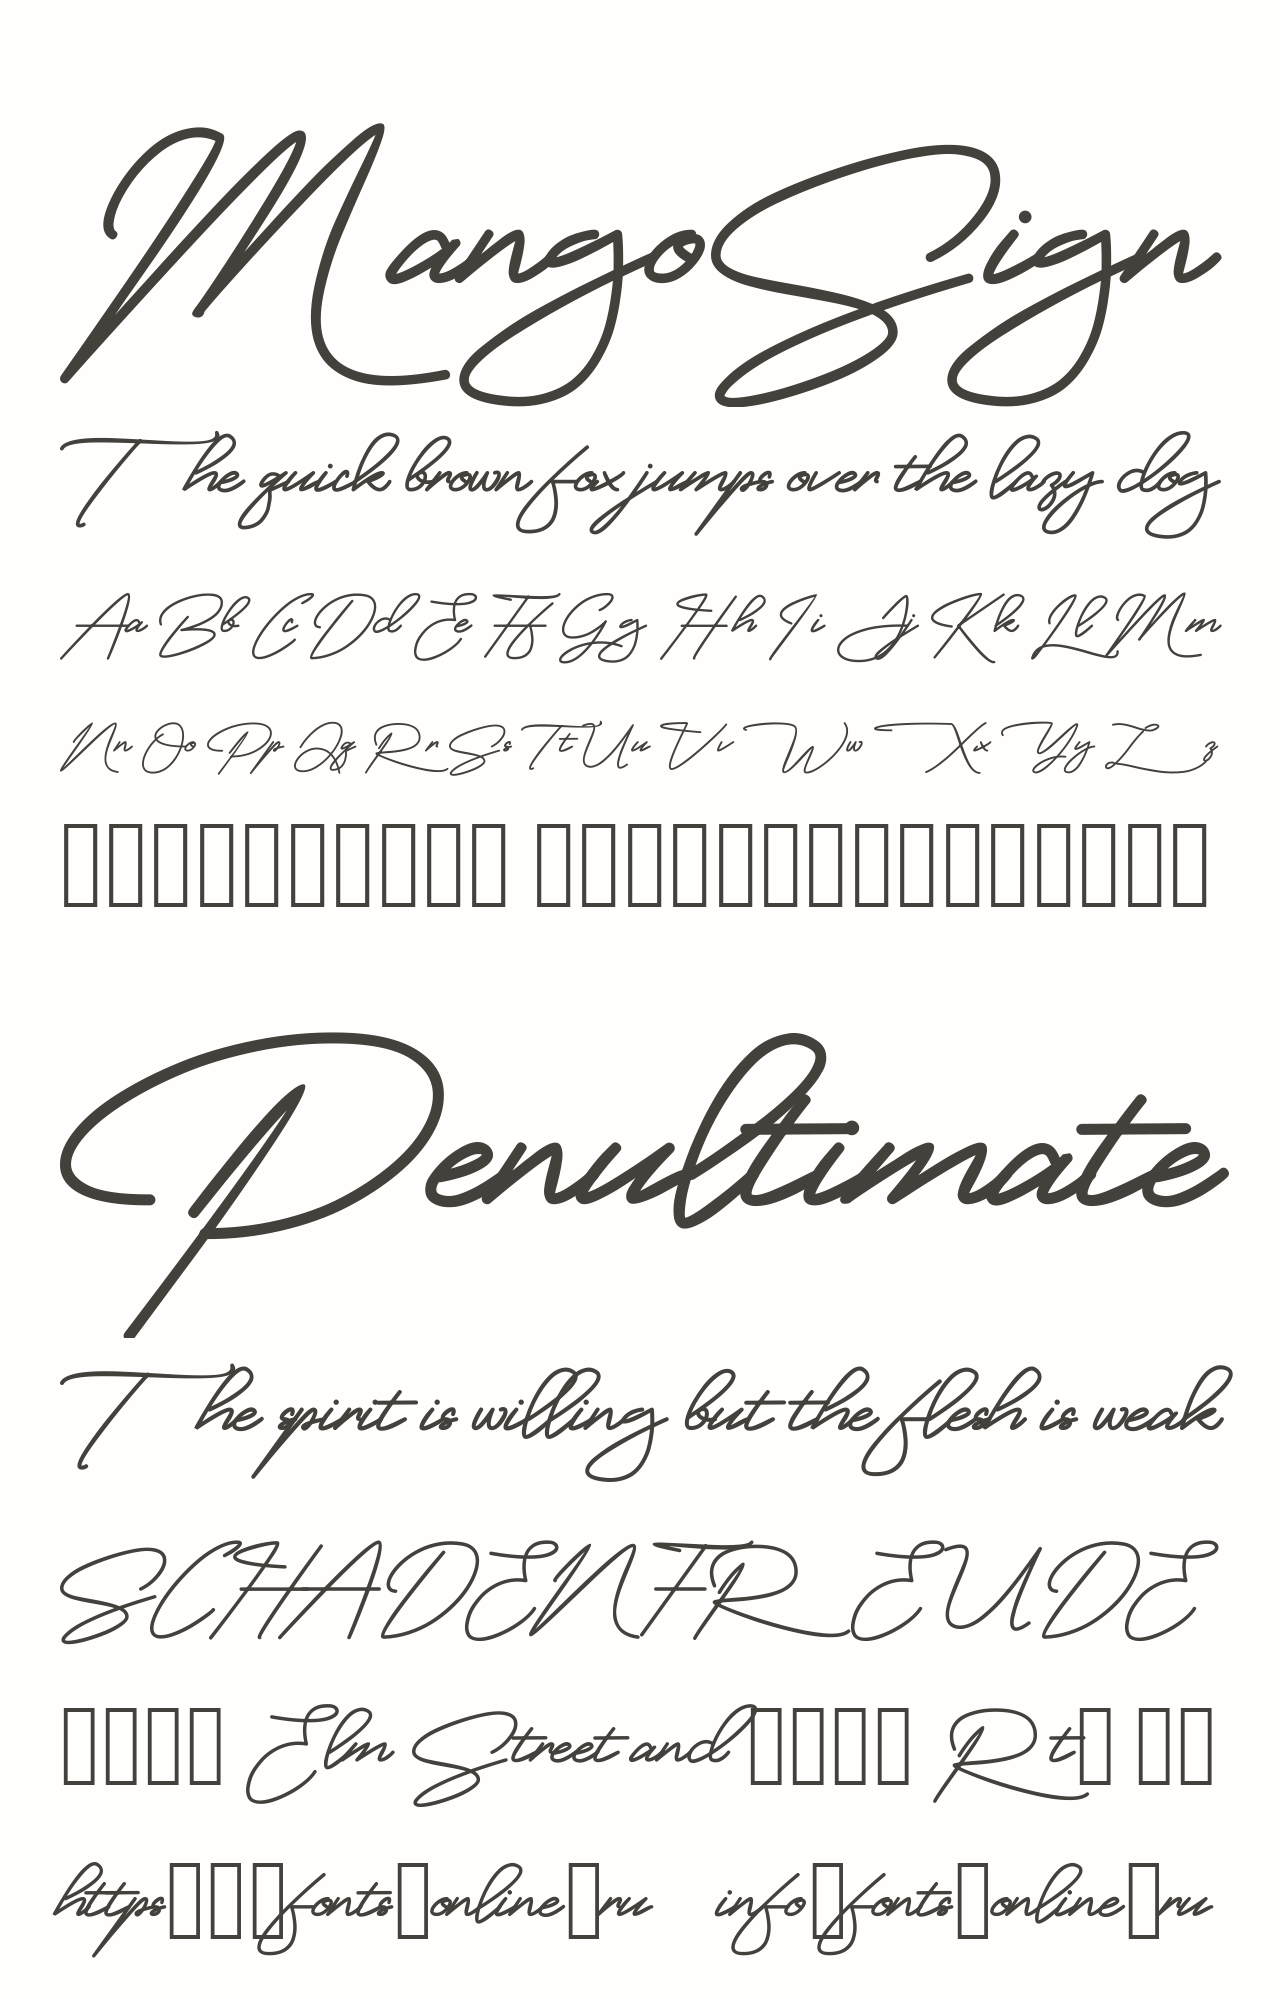 MangoSign
The quick brown fox jumps over the lazy dog
Aa Bb Cc Dd Ee Ff Gg Hh Ii Jj Kk Ll Mm
Nn Oo Pp Qq Rr Ss Tt Uu Vv Ww Xx Yy Zz
▯▯▯▯▯▯▯▯▯▯ ▯▯▯▯▯▯▯▯▯▯▯▯▯▯▯
Penultimate
The spirit is willing but the flesh is weak
SCHADENFREUDE
▯▯▯▯ Elm Street and ▯▯▯▯ Rt▯ ▯▯
https▯▯▯fonts▯online▯ru info▯fonts▯online▯ru